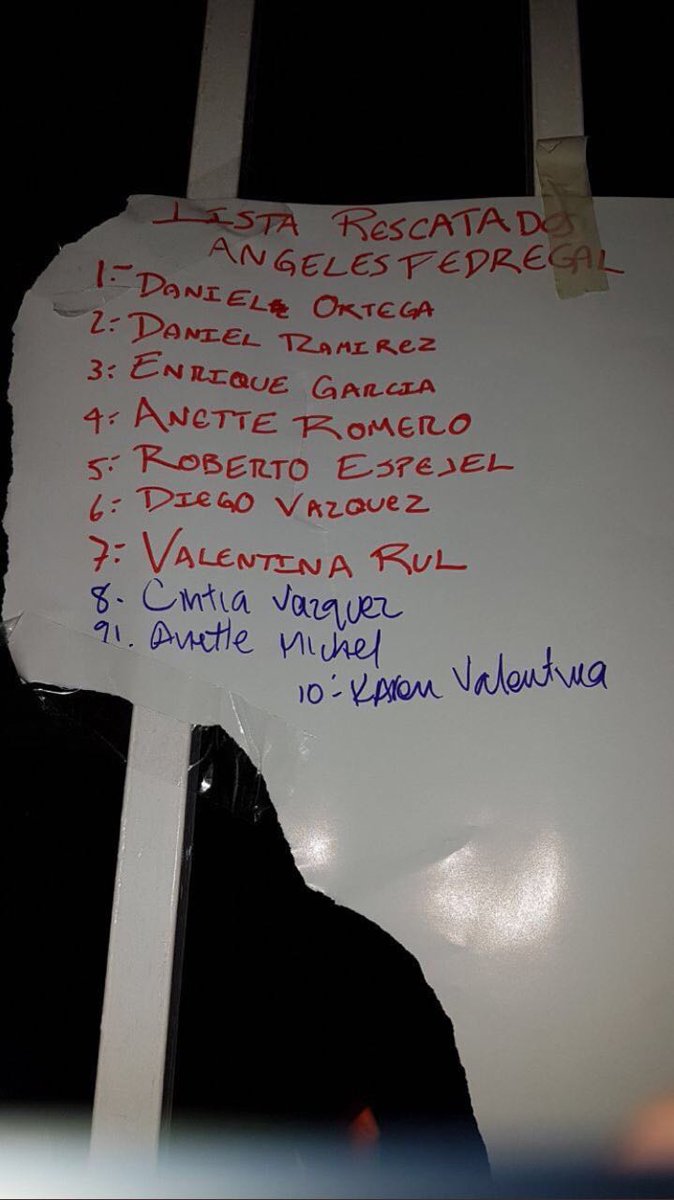 LISTA RESCATADOS
ANGELES PEDREGAL
1.- DANIEL ORTEGA
2: DANIEL RAMIREZ
3: ENRIQUE GARCIA
4: ANETTE ROMERO
5: ROBERTO ESPEJEL
6: DIEGO VAZQUEZ
7: VALENTINA RUL
8. Cintia Vazquez
91. Anette Michel
10: Karen Valentina